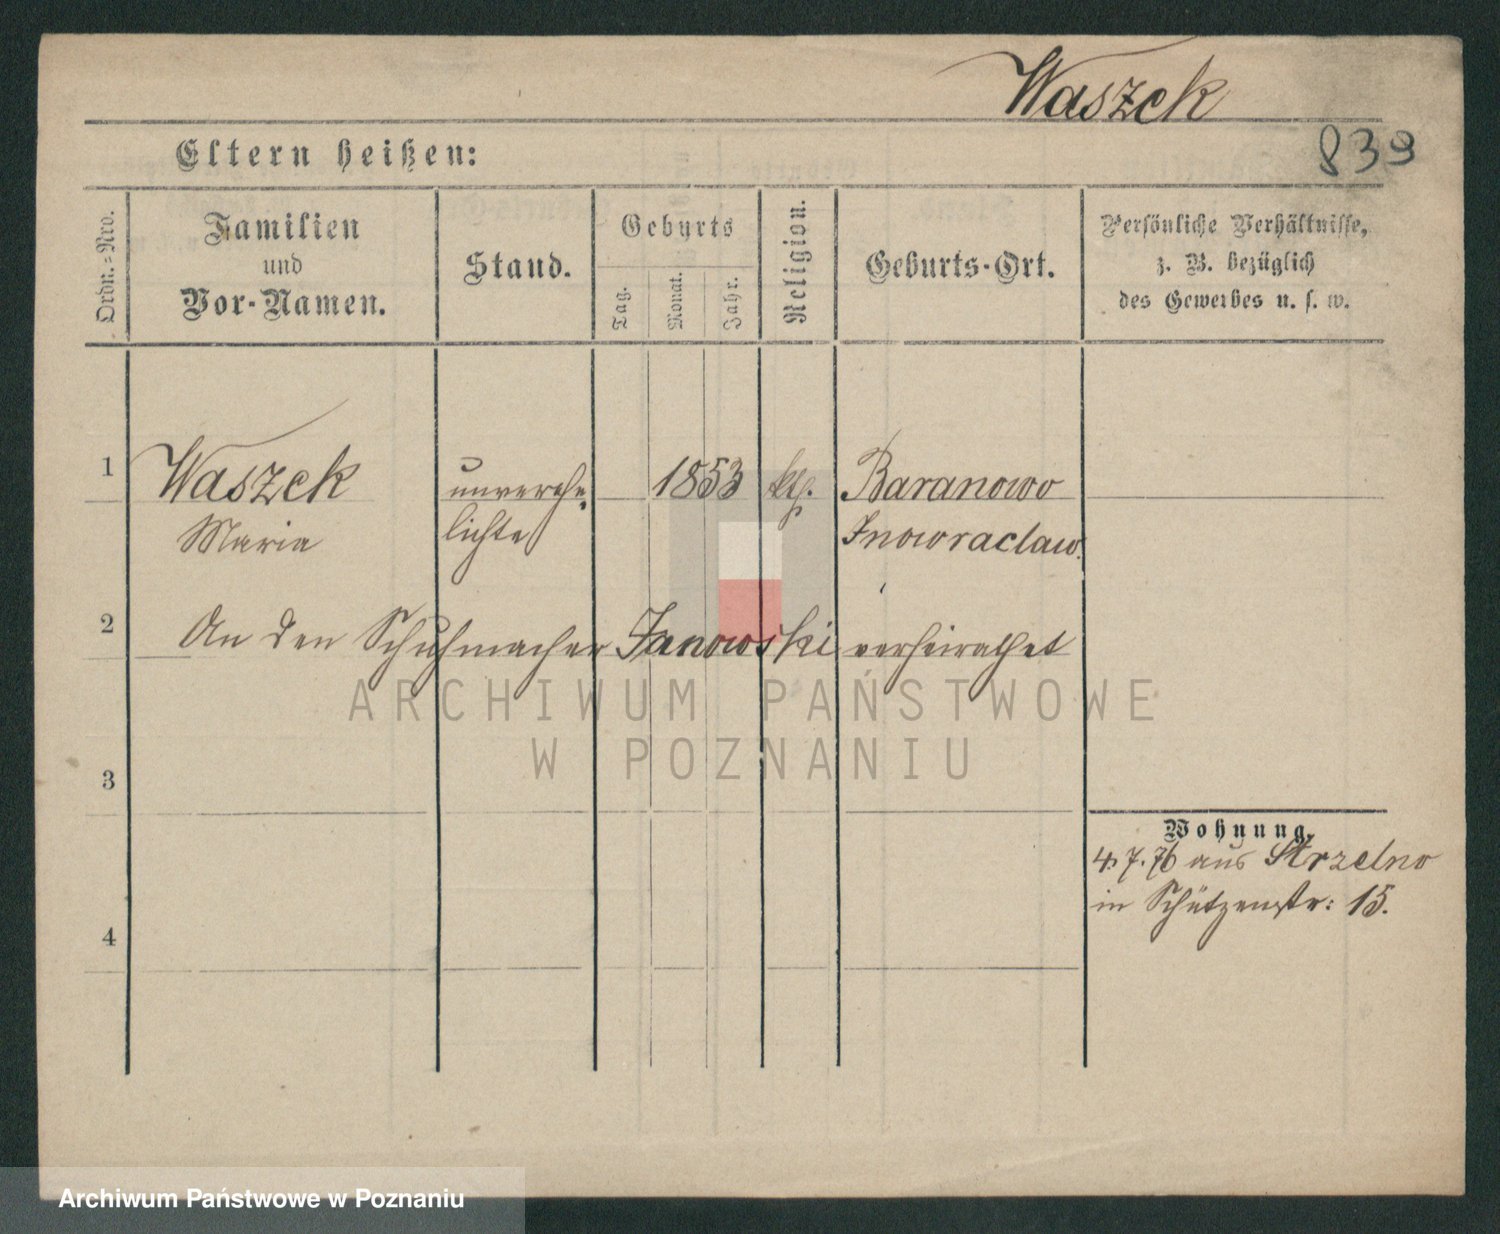 Waszek
839
Eltern heißen:
Ordn.=Nro.
Familien
und
Vor-Namen.
Stand.
Geburts
Tag.
Monat.
Jahr.
Religion.
Geburts-Ort.
Persönliche Verhältnisse,
z. B. bezüglich
des Gewerbes u. s. w.
1
Waszek
Maria
unverehe-
lichte
1853
kth.
Baranowo
Inowraclaw.
2
An den Schuhmacher Janowski verheirathet
ARCHIWUM PAŃSTWOWE
W POZNANIU
3
Wohnung.
4.7.76 aus Strzelno
in Schützenstr: 15.
4
Archiwum Państwowe w Poznaniu